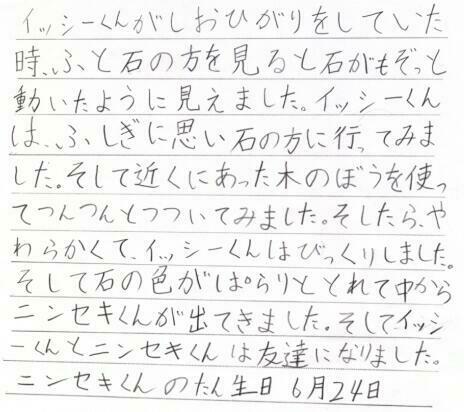 イッシーくんがしおひがりをしていた
時、ふと石の方を見ると石がもぞっと
動いたように見えました。イッシーくん
は、ふしぎに思い石の方に行ってみま
した。そして近くにあった木のぼうを使っ
てつんつんとつついてみました。そしたら、や
わらかくて、イッシーくんはびっくりしました。
そして石の色がぱらりととれて中から
ニンセキくんが出てきました。そしてイッシ
ーくんとニンセキくんは友達になりました。
ニンセキくんのたん生日 6月24日